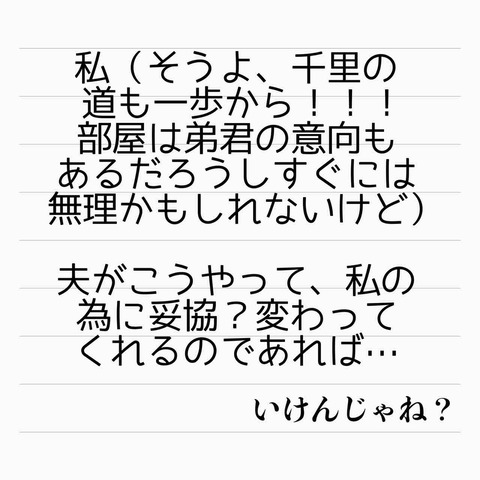 私（そうよ、千里の
道も一歩から！！！
部屋は弟君の意向も
あるだろうしすぐには
無理かもしれないけど）
夫がこうやって、私の
為に妥協？変わって
くれるのであれば…
いけんじゃね？